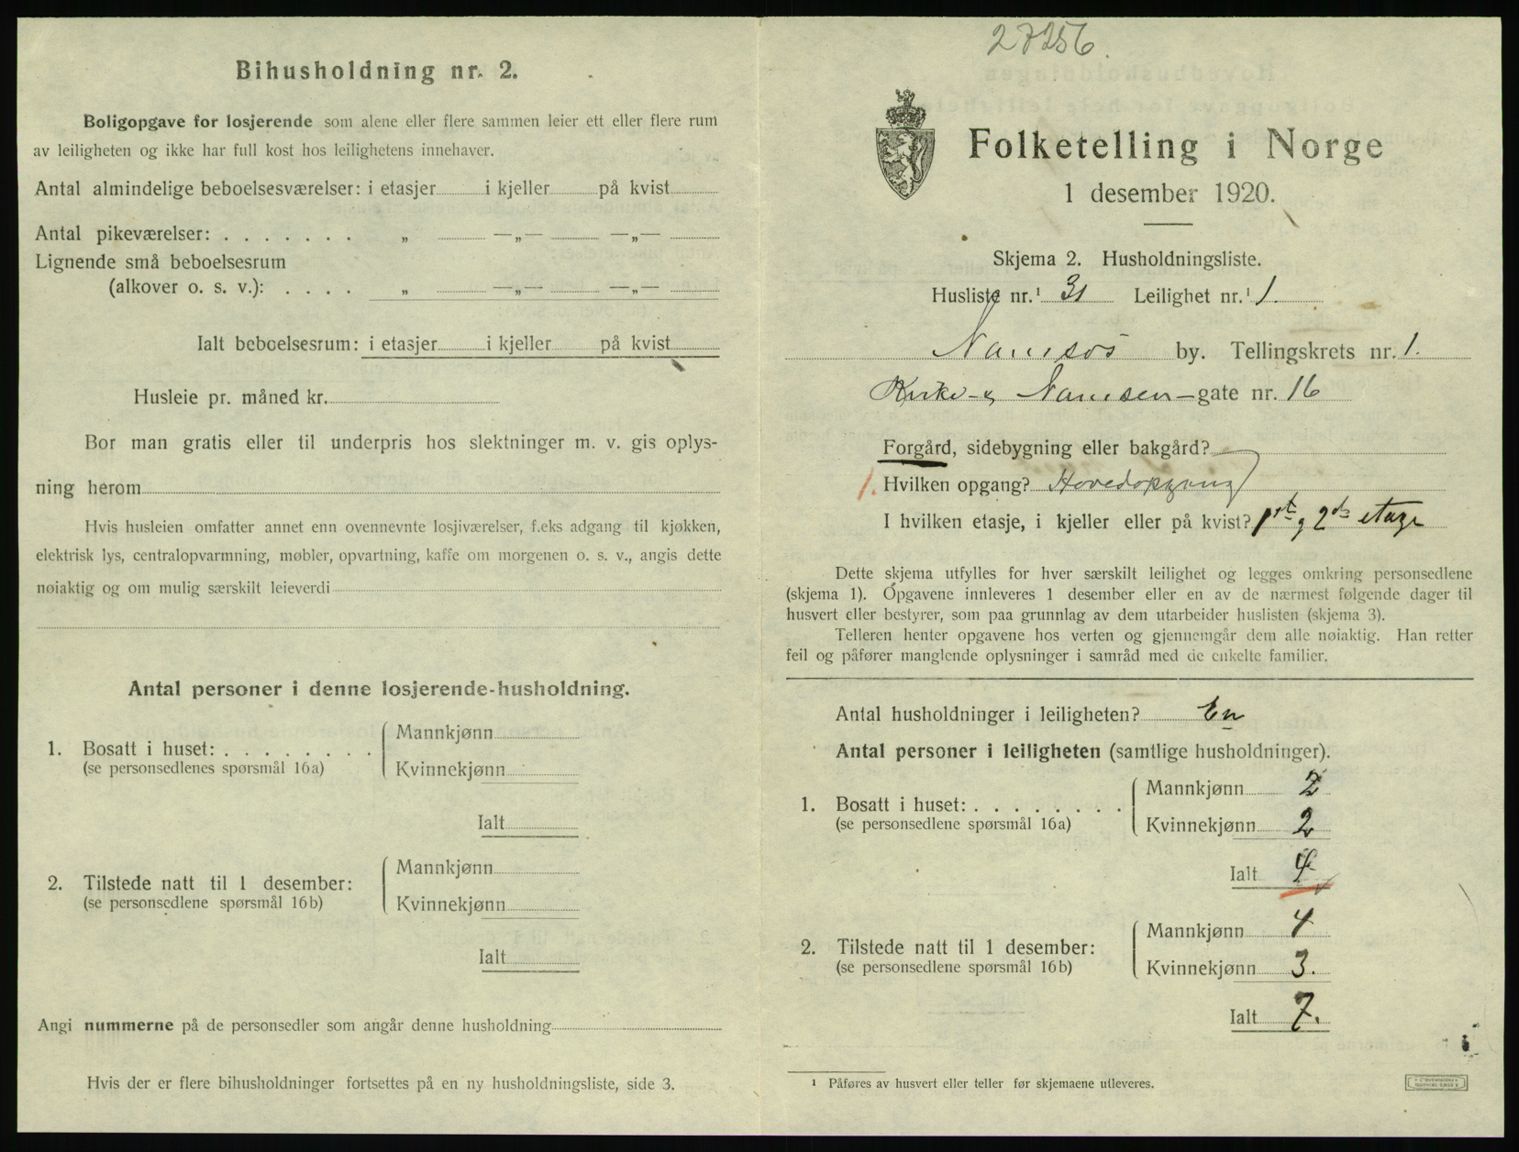 Bihusholdning nr. 2.
Boligopgave for losjerende som alene eller flere sammen leier ett eller flere rum
av leiligheten og ikke har full kost hos leilighetens innehaver.
Antal almindelige beboelsesværelser: i etasjer i kjeller på kvist
Antal pikeværelser: . . . . . . . „ —„— —„—
Lignende små beboelsesrum
(alkover o. s. v.): . . . . „ —„— —„—
Ialt beboelsesrum: i etasjer i kjeller på kvist
Husleie pr. måned kr.
Bor man gratis eller til underpris hos slektninger m. v. gis oplys-
ning herom
Hvis husleien omfatter annet enn ovennevnte losjiværelser, f.eks adgang til kjøkken,
elektrisk lys, centralopvarmning, møbler, opvartning, kaffe om morgenen o. s. v., angis dette
nøiaktig og om mulig særskilt leieverdi
Antal personer i denne losjerende-husholdning.
1. Bosatt i huset: . . . . . . . .
(se personsedlenes spørsmål 16a)
Mannkjønn
Kvinnekjønn
Ialt
2. Tilstede natt til 1 desember:
(se personsedlene spørsmål 16b)
Mannkjønn
Kvinnekjønn
Ialt
Angi nummerne på de personsedler som angår denne husholdning
Hvis der er flere bihusholdninger fortsettes på en ny husholdningsliste, side 3.
27256.
Folketelling i Norge
1 desember 1920.
Skjema 2. Husholdningsliste.
Husliste nr.¹ 31 Leilighet nr.¹ 1.
Namsos by. Tellingskrets nr. 1.
Kirke- og Namsen-gate nr. 16
Forgård, sidebygning eller bakgård?
1. Hvilken opgang? Hovedopgang
I hvilken etasje, i kjeller eller på kvist? 1ste og 2den etage
Dette skjema utfylles for hver særskilt leilighet og legges omkring personsedlene
(skjema 1). Opgavene innleveres 1 desember eller en av de nærmest følgende dager til
husvert eller bestyrer, som paa grunnlag av dem utarbeider huslisten (skjema 3).
Telleren henter opgavene hos verten og gjennemgår dem alle nøiaktig. Han retter
feil og påfører manglende oplysninger i samråd med de enkelte familier.
Antal husholdninger i leiligheten? En
Antal personer i leiligheten (samtlige husholdninger).
1. Bosatt i huset: . . . . . . . .
(se personsedlene spørsmål 16a)
Mannkjønn 2
Kvinnekjønn 2
Ialt 4
2. Tilstede natt til 1 desember:
(se personsedlene spørsmål 16b)
Mannkjønn 4
Kvinnekjønn 3.
Ialt 7.
¹ Påføres av husvert eller teller før skjemaene utleveres.